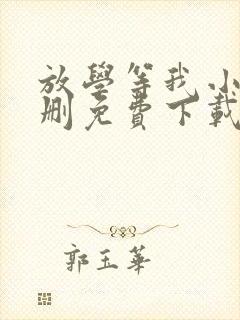 放學等我小
刪免費下載
郭玉華